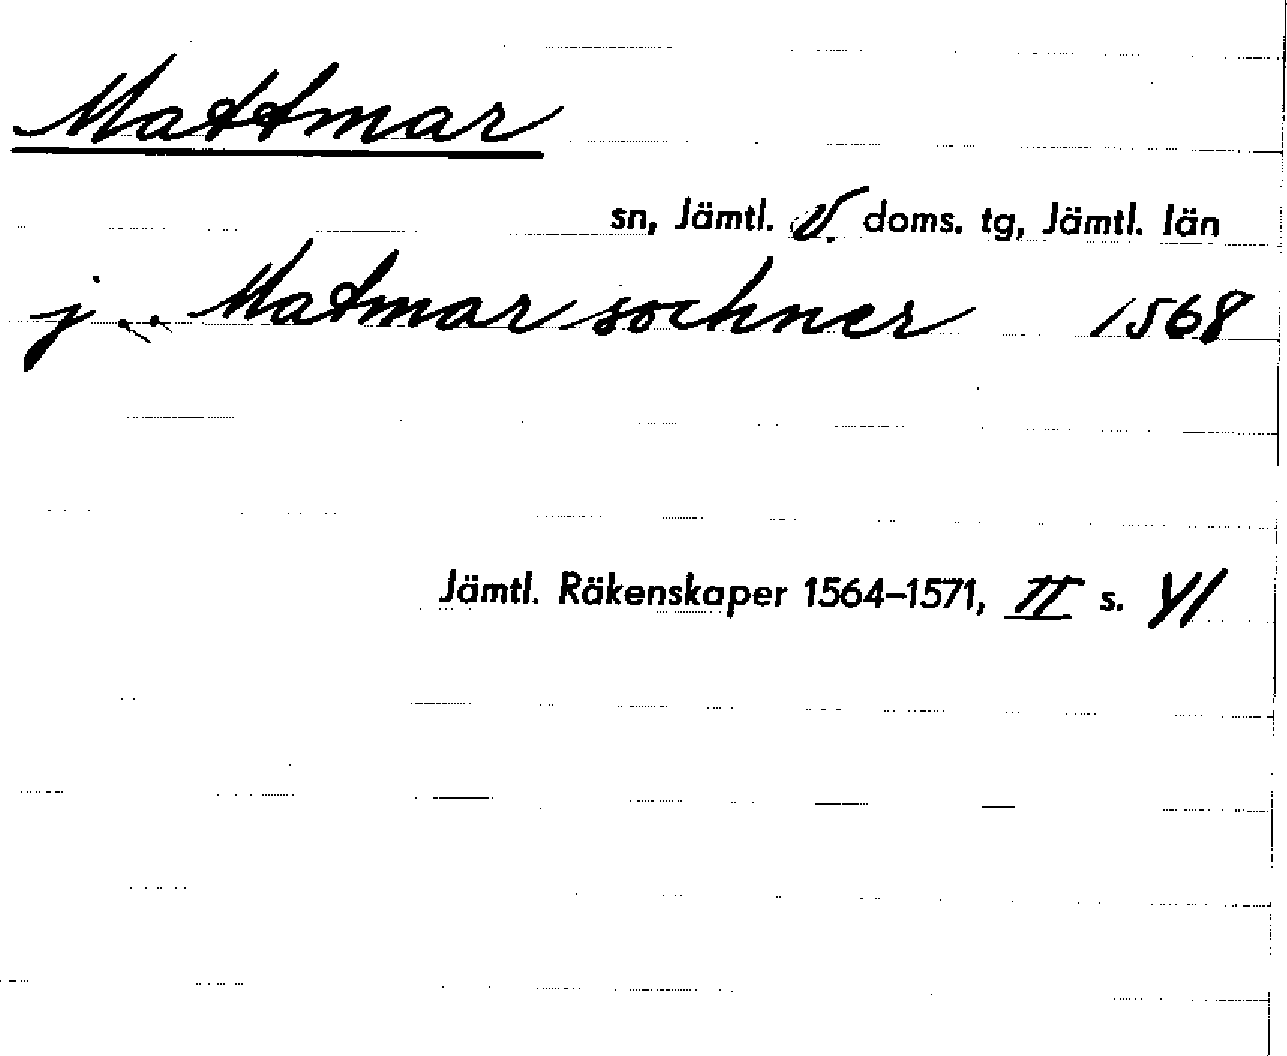 Mattmar
sn, Jämtl. V. doms. tg, Jämtl. län
j .. Matmar sochner 1568
Jämtl. Räkenskaper 1564–1571, II s.